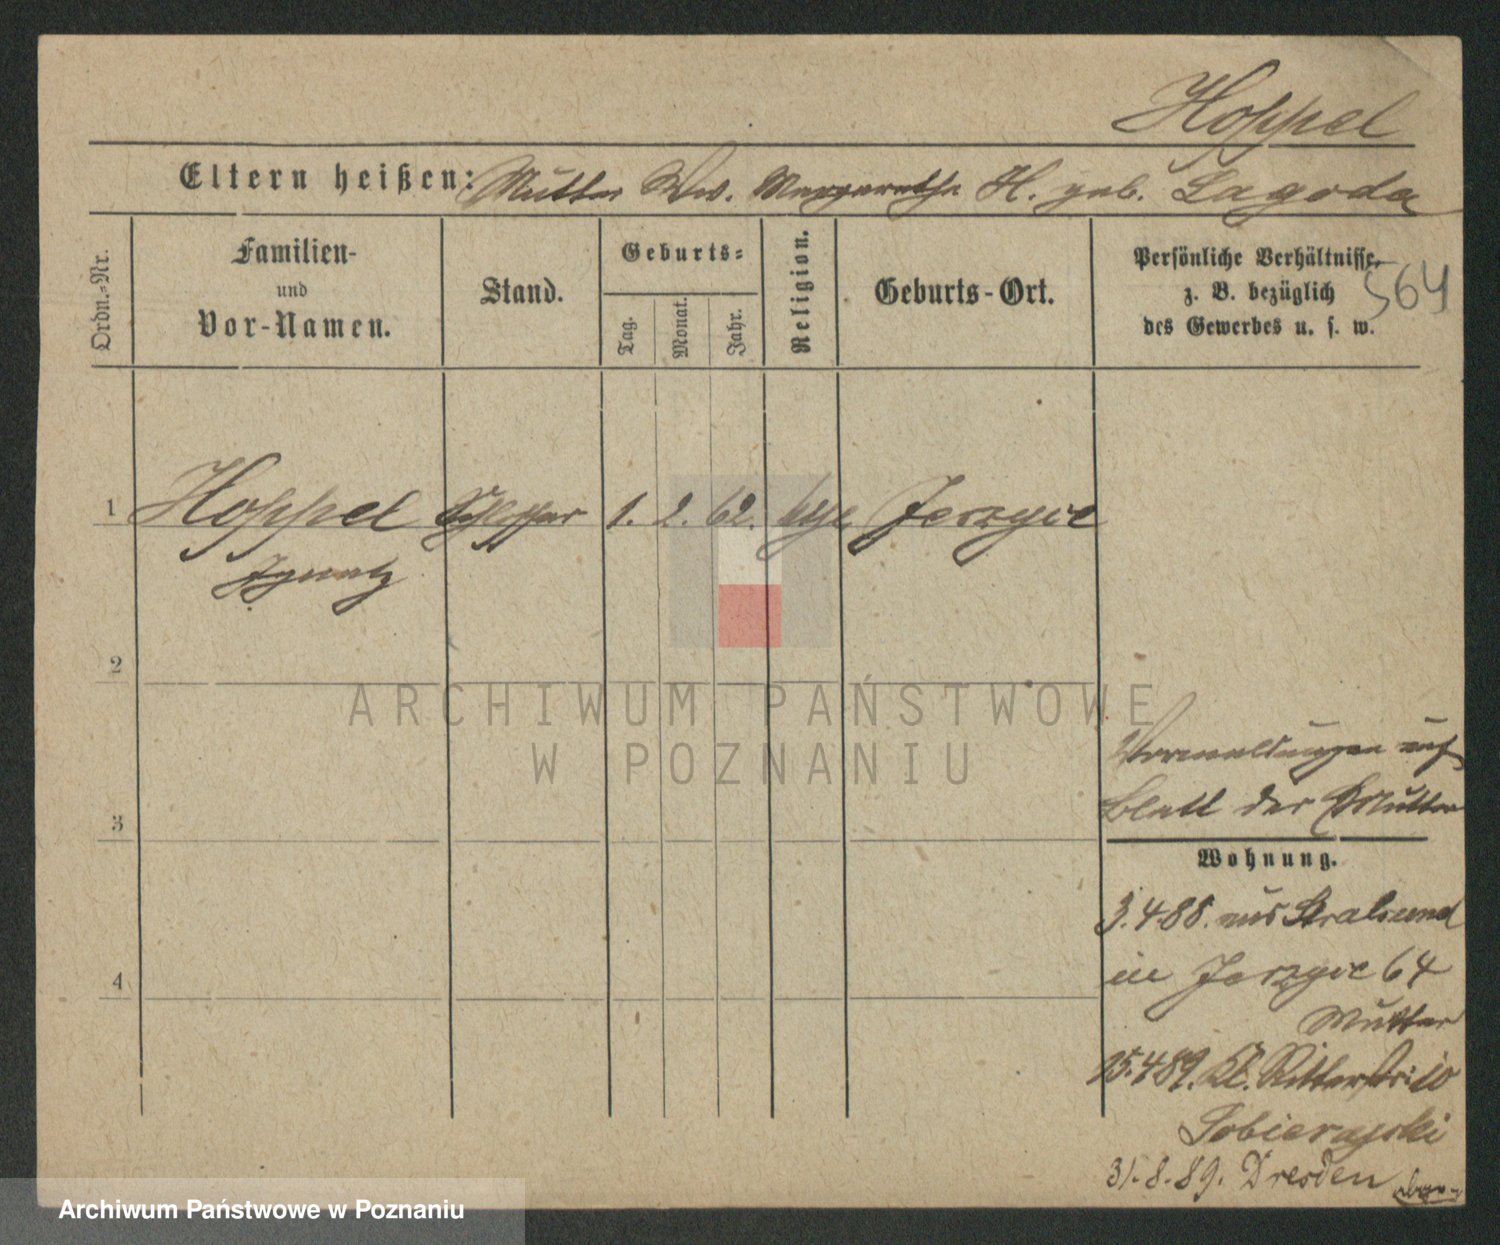 Hoppel
Eltern heißen: Mutter Ww. Margarethe H. geb. Lagoda
Ordn.-Nr.
Familien-
und
Vor-Namen.
Stand.
Geburts-
Tag.
Monat.
Jahr.
Religion.
Geburts-Ort.
Persönliche Verhältnisse,
z. B. bezüglich
des Gewerbes u. s. w.
564
1 Hoppel 1. 2. 62. Jerzyce
Ignatz
2
3
4
Vermeldungen auf
Blatt der Mutter
Wohnung.
3.4.88. aus Stralsund
in Jerzyce 64
Mutter
15.4.89. Kl. Ritterstr. 10
Sobierayski
31.8.89. Dresden
ARCHIWUM PAŃSTWOWE
W POZNANIU
Archiwum Państwowe w Poznaniu